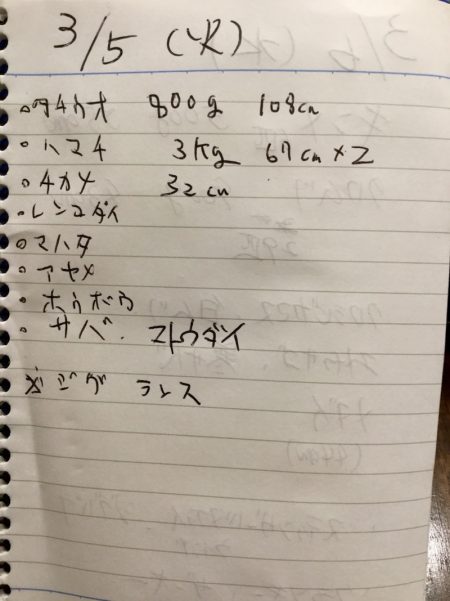 3/5 (火)
・タチウオ 800g 108cm
・ハマチ 3kg 67cm×2
・チカメ 32cm
・レンコダイ
・マハタ
・アヤメ
・ホウボウ
・サバ. マトウダイ
ジグ ランス